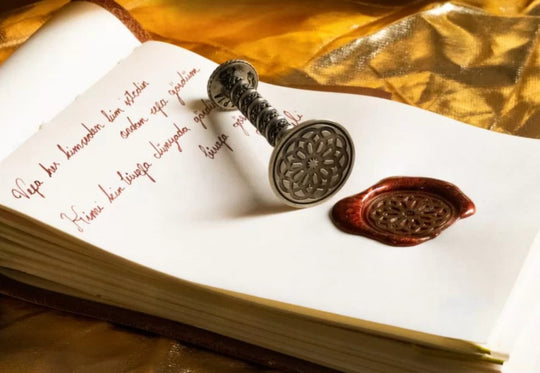 Vefa her kimseden kim istedim
ondan cefa gördüm
Kimi kim bivefa dünyada
bivefa